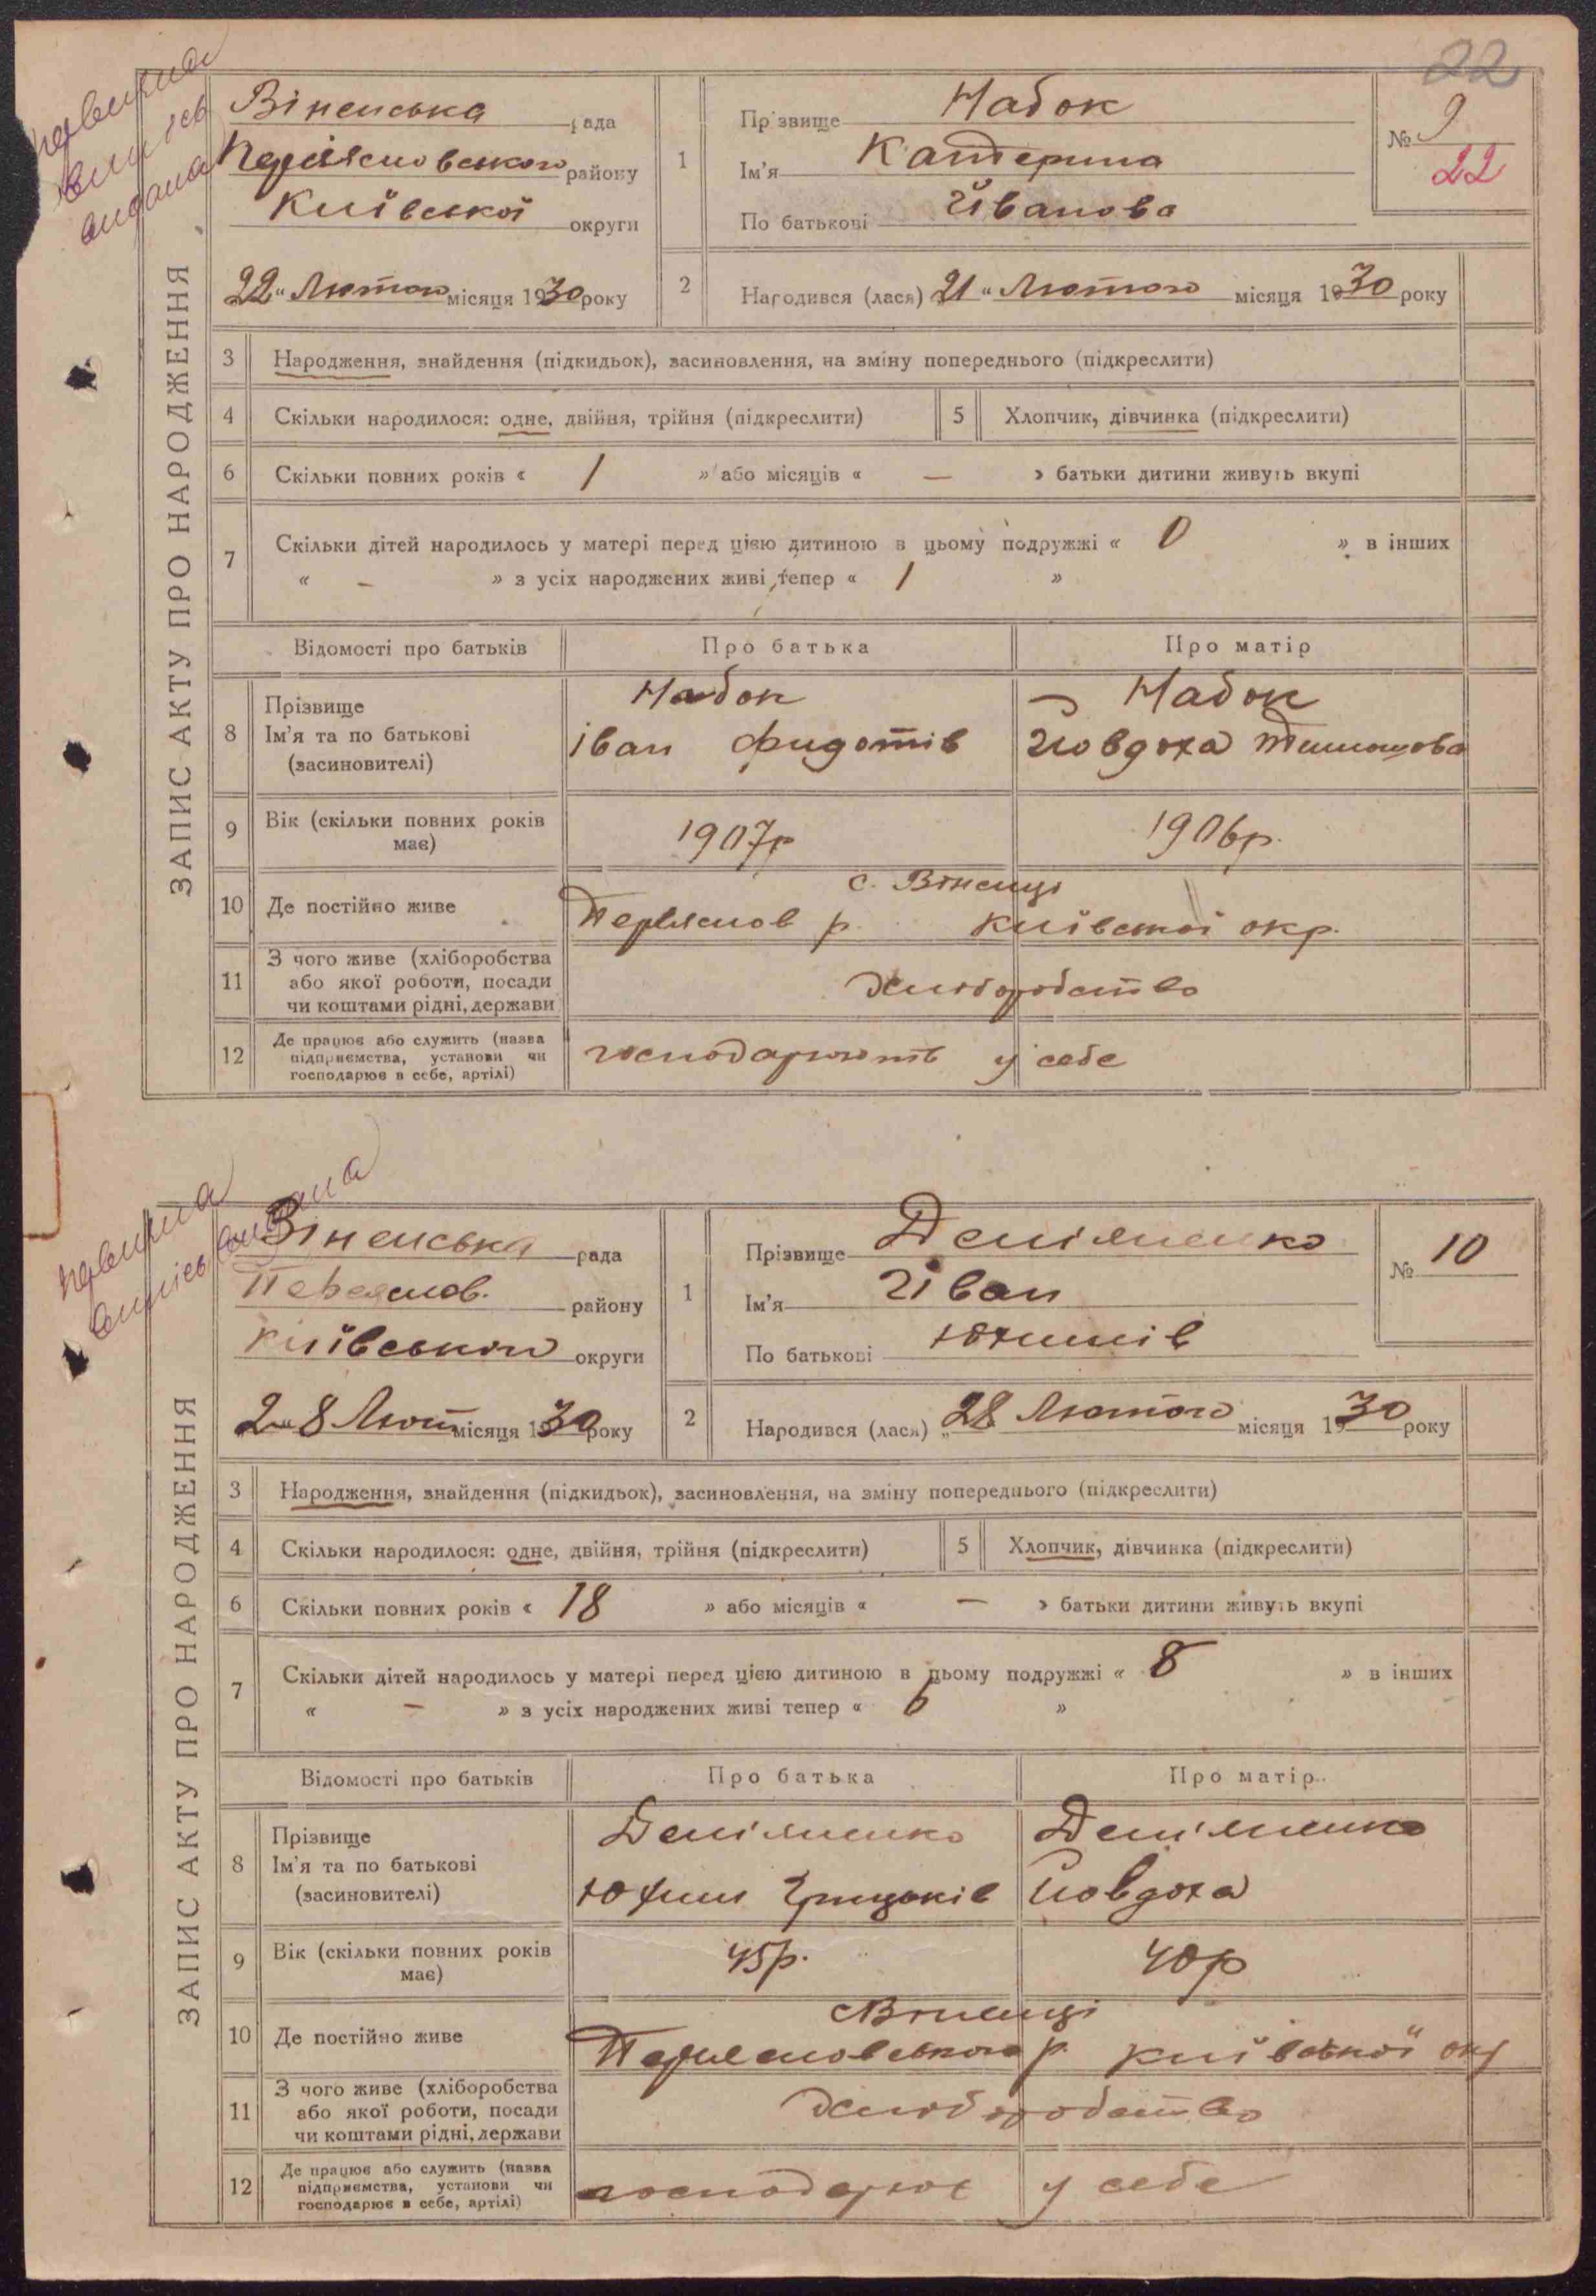 22
первична
виписъ
видана
ЗАПИС АКТУ ПРО НАРОДЖЕННЯ
Віненська рада
Переяславського району
Київської округи
22 „ Лютого місяця 1930 року
1
Прізвище Набок
Ім'я Катерина
По батькові Іванова
№ 9
22
2
Народився (лася) 21 „ Лютого місяця 1930 року
3 Народження, знайдення (підкидьок), засиновлення, на зміну попереднього (підкреслити)
4 Скільки народилося: одне, двійня, трійня (підкреслити) 5 Хлопчик, дівчинка (підкреслити)
6 Скільки повних років « 1 » або місяців « — » батьки дитини живуть вкупі
7 Скільки дітей народилось у матері перед цією дитиною в цьому подружжі « 0 » в інших
« – » з усіх народжених живі тепер « 1 »
Відомості про батьків Про батька Про матір
8 Прізвище Ім'я та по батькові (засиновителі)
Набок Набок
іван Фидотів Йовдоха Тимошова
9 Вік (скільки повних років має) 1907р 1906р.
10 Де постійно живе
с. Віненці
Переяслов р. Київської окр.
11 З чого живе (хліборобства або якої роботи, посади чи коштами рідні, держави
хлиборобство
12 Де працює або служить (назва підприємства, установи чи господарює в себе, артілі)
господарюють у себе
первична
виписъ видана
ЗАПИС АКТУ ПРО НАРОДЖЕННЯ
Віненська рада
Переяслов. району
Київськой округи
2„8 Лют місяця 1930 року
1
Прізвище Деміяненко
Ім'я Іван
По батькові Юхимів
№ 10
2
Народився (лася) „28 Лютого місяця 1930 року
3 Народження, знайдення (підкидьок), засиновлення, на зміну попереднього (підкреслити)
4 Скільки народилося: одне, двійня, трійня (підкреслити) 5 Хлопчик, дівчинка (підкреслити)
6 Скільки повних років « 18 » або місяців « — » батьки дитини живуть вкупі
7 Скільки дітей народилось у матері перед цією дитиною в цьому подружжі « 8 » в інших
« – » з усіх народжених живі тепер « 6 »
Відомості про батьків Про батька Про матір
8 Прізвище Ім'я та по батькові (засиновителі)
Деміяненко Деміяненко
Юхим Грицьків Йовдоха
9 Вік (скільки повних років має) 45р. 40р
10 Де постійно живе
с Віненці
Переясловського р. Київської окр
11 З чого живе (хліборобства або якої роботи, посади чи коштами рідні, держави
хлиборобство
12 Де працює або служить (назва підприємства, установи чи господарює в себе, артілі)
господарює у себе